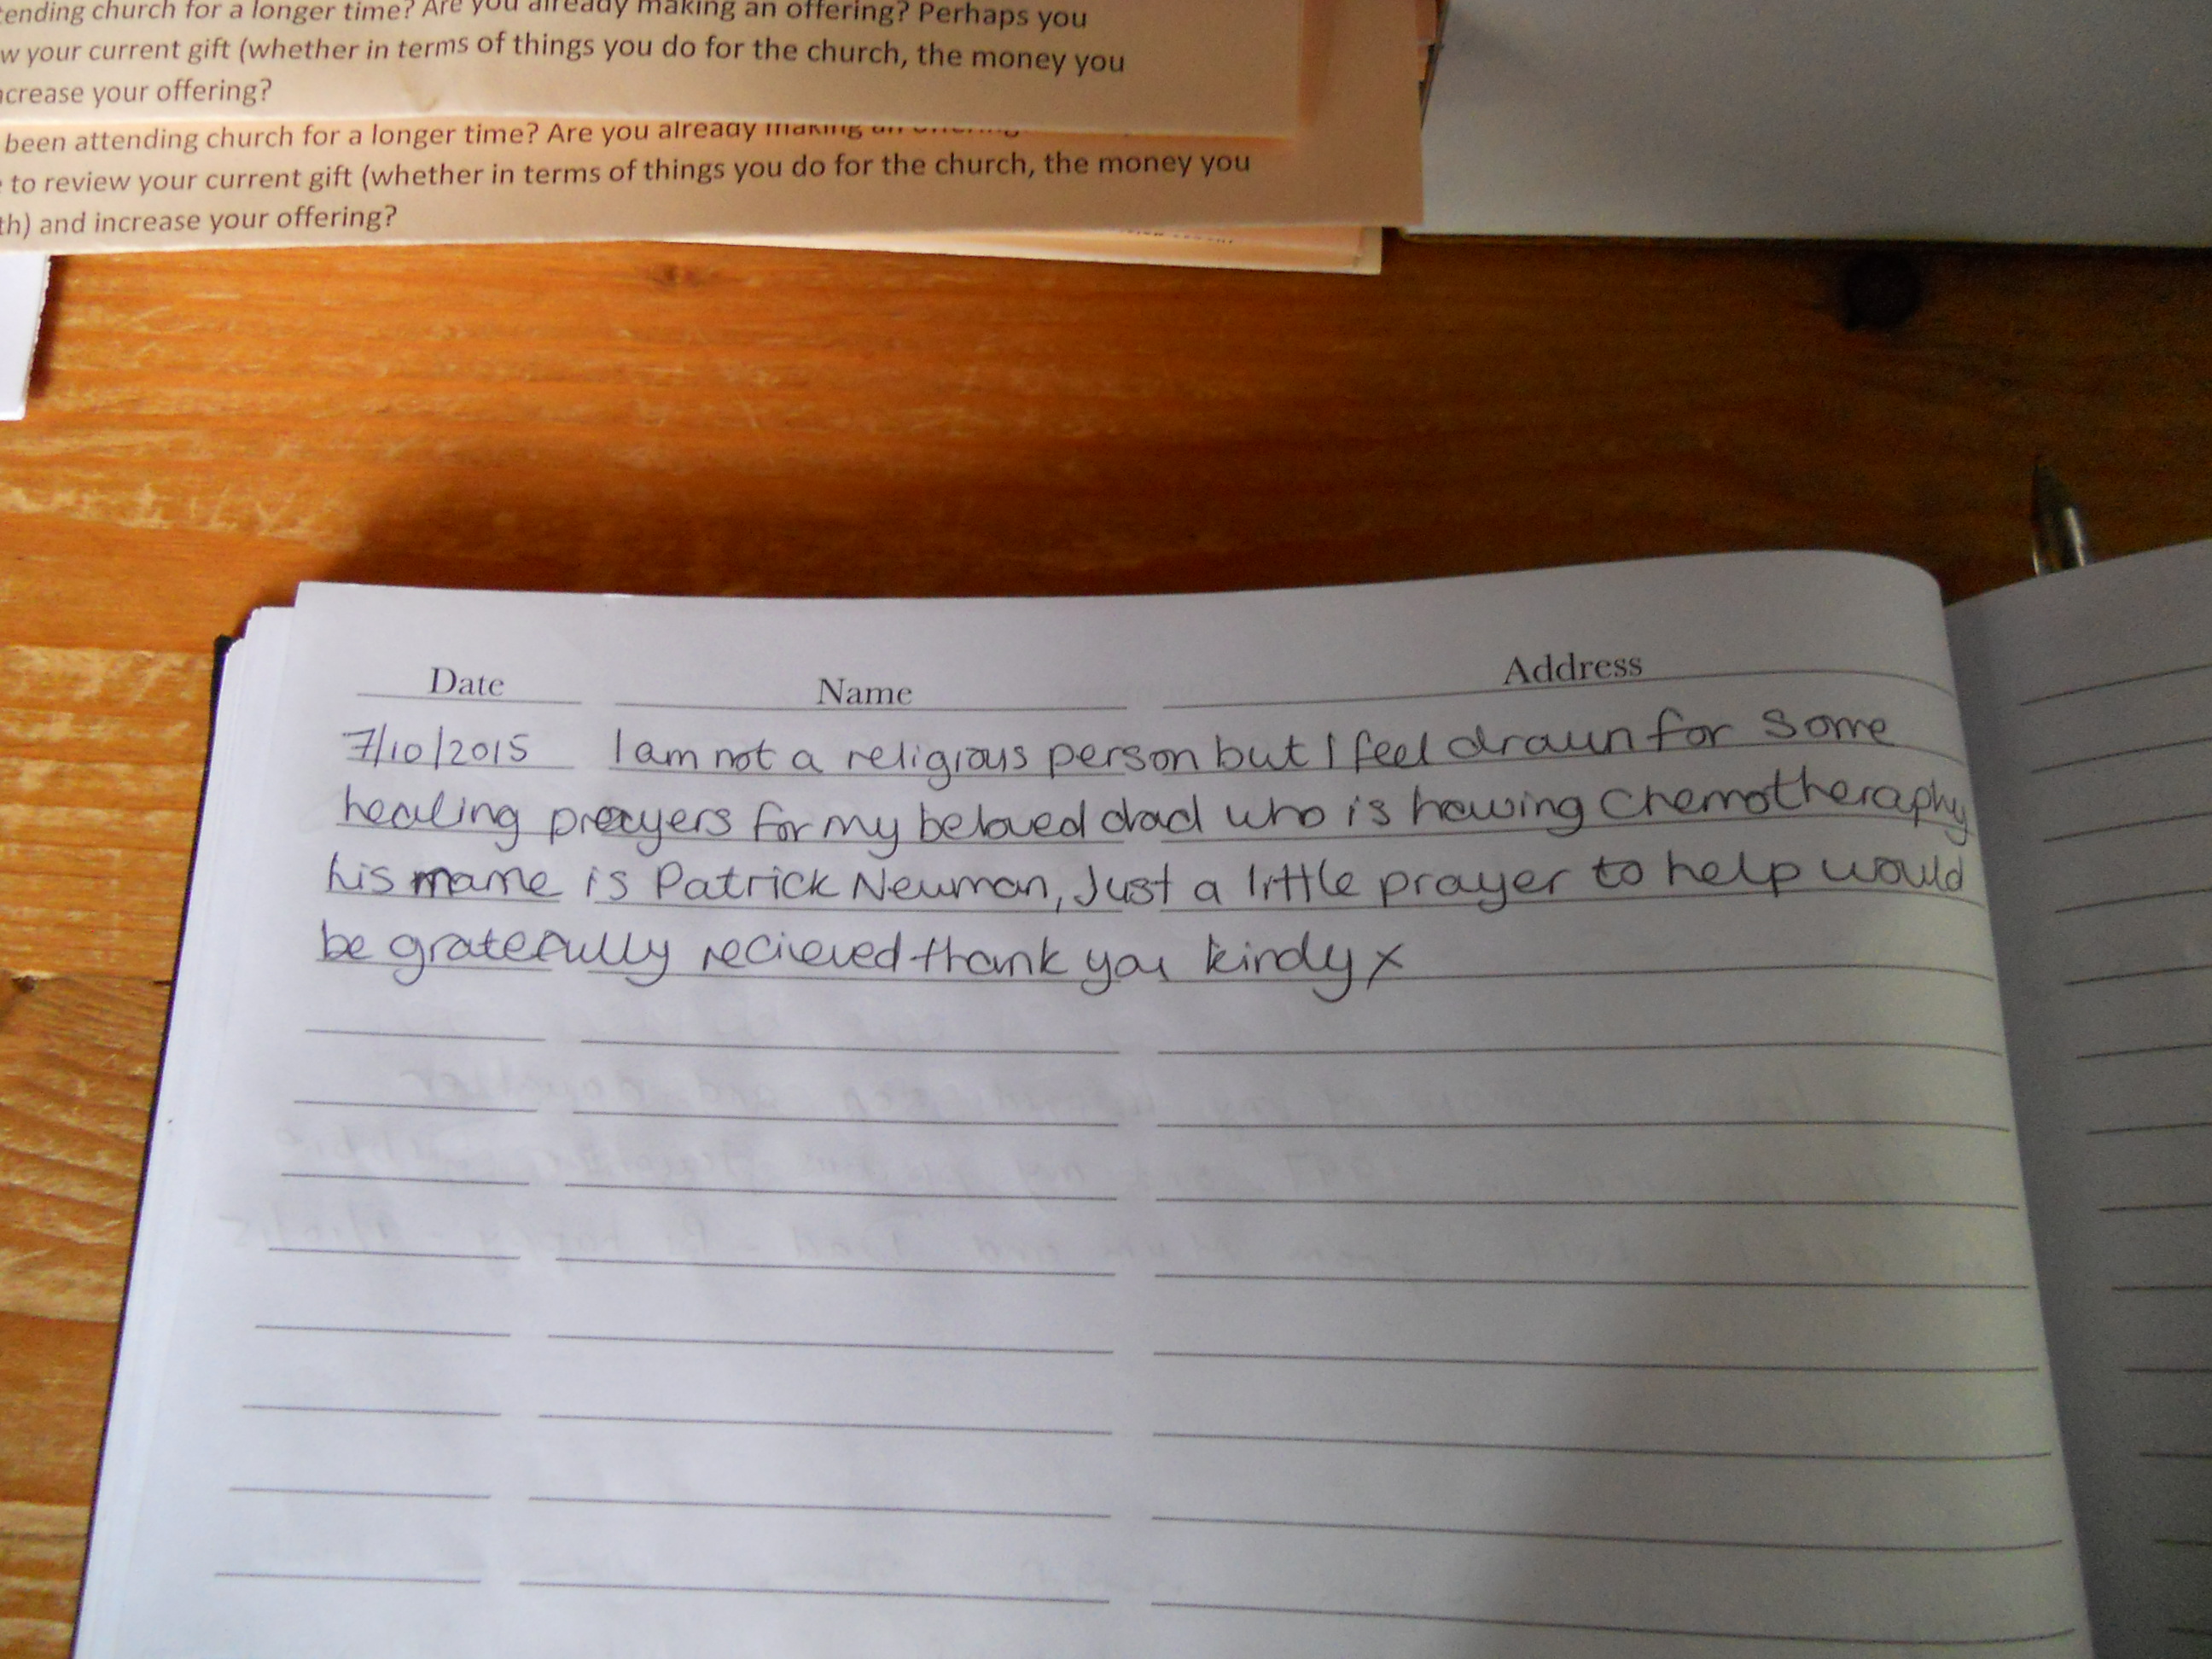 tending church for a longer time? Are you already making an offering? Perhaps you
w your current gift (whether in terms of things you do for the church, the money you
ncrease your offering?
been attending church for a longer time? Are you already making an offering
to review your current gift (whether in terms of things you do for the church, the money you
th) and increase your offering?
Date Name Address
7/10/2015 I am not a religious person but I feel drawn for some
healing prayers for my beloved dad who is having chemotheraphy
his name is Patrick Newman, Just a little prayer to help would
be gratefully recieved thank you kindy x